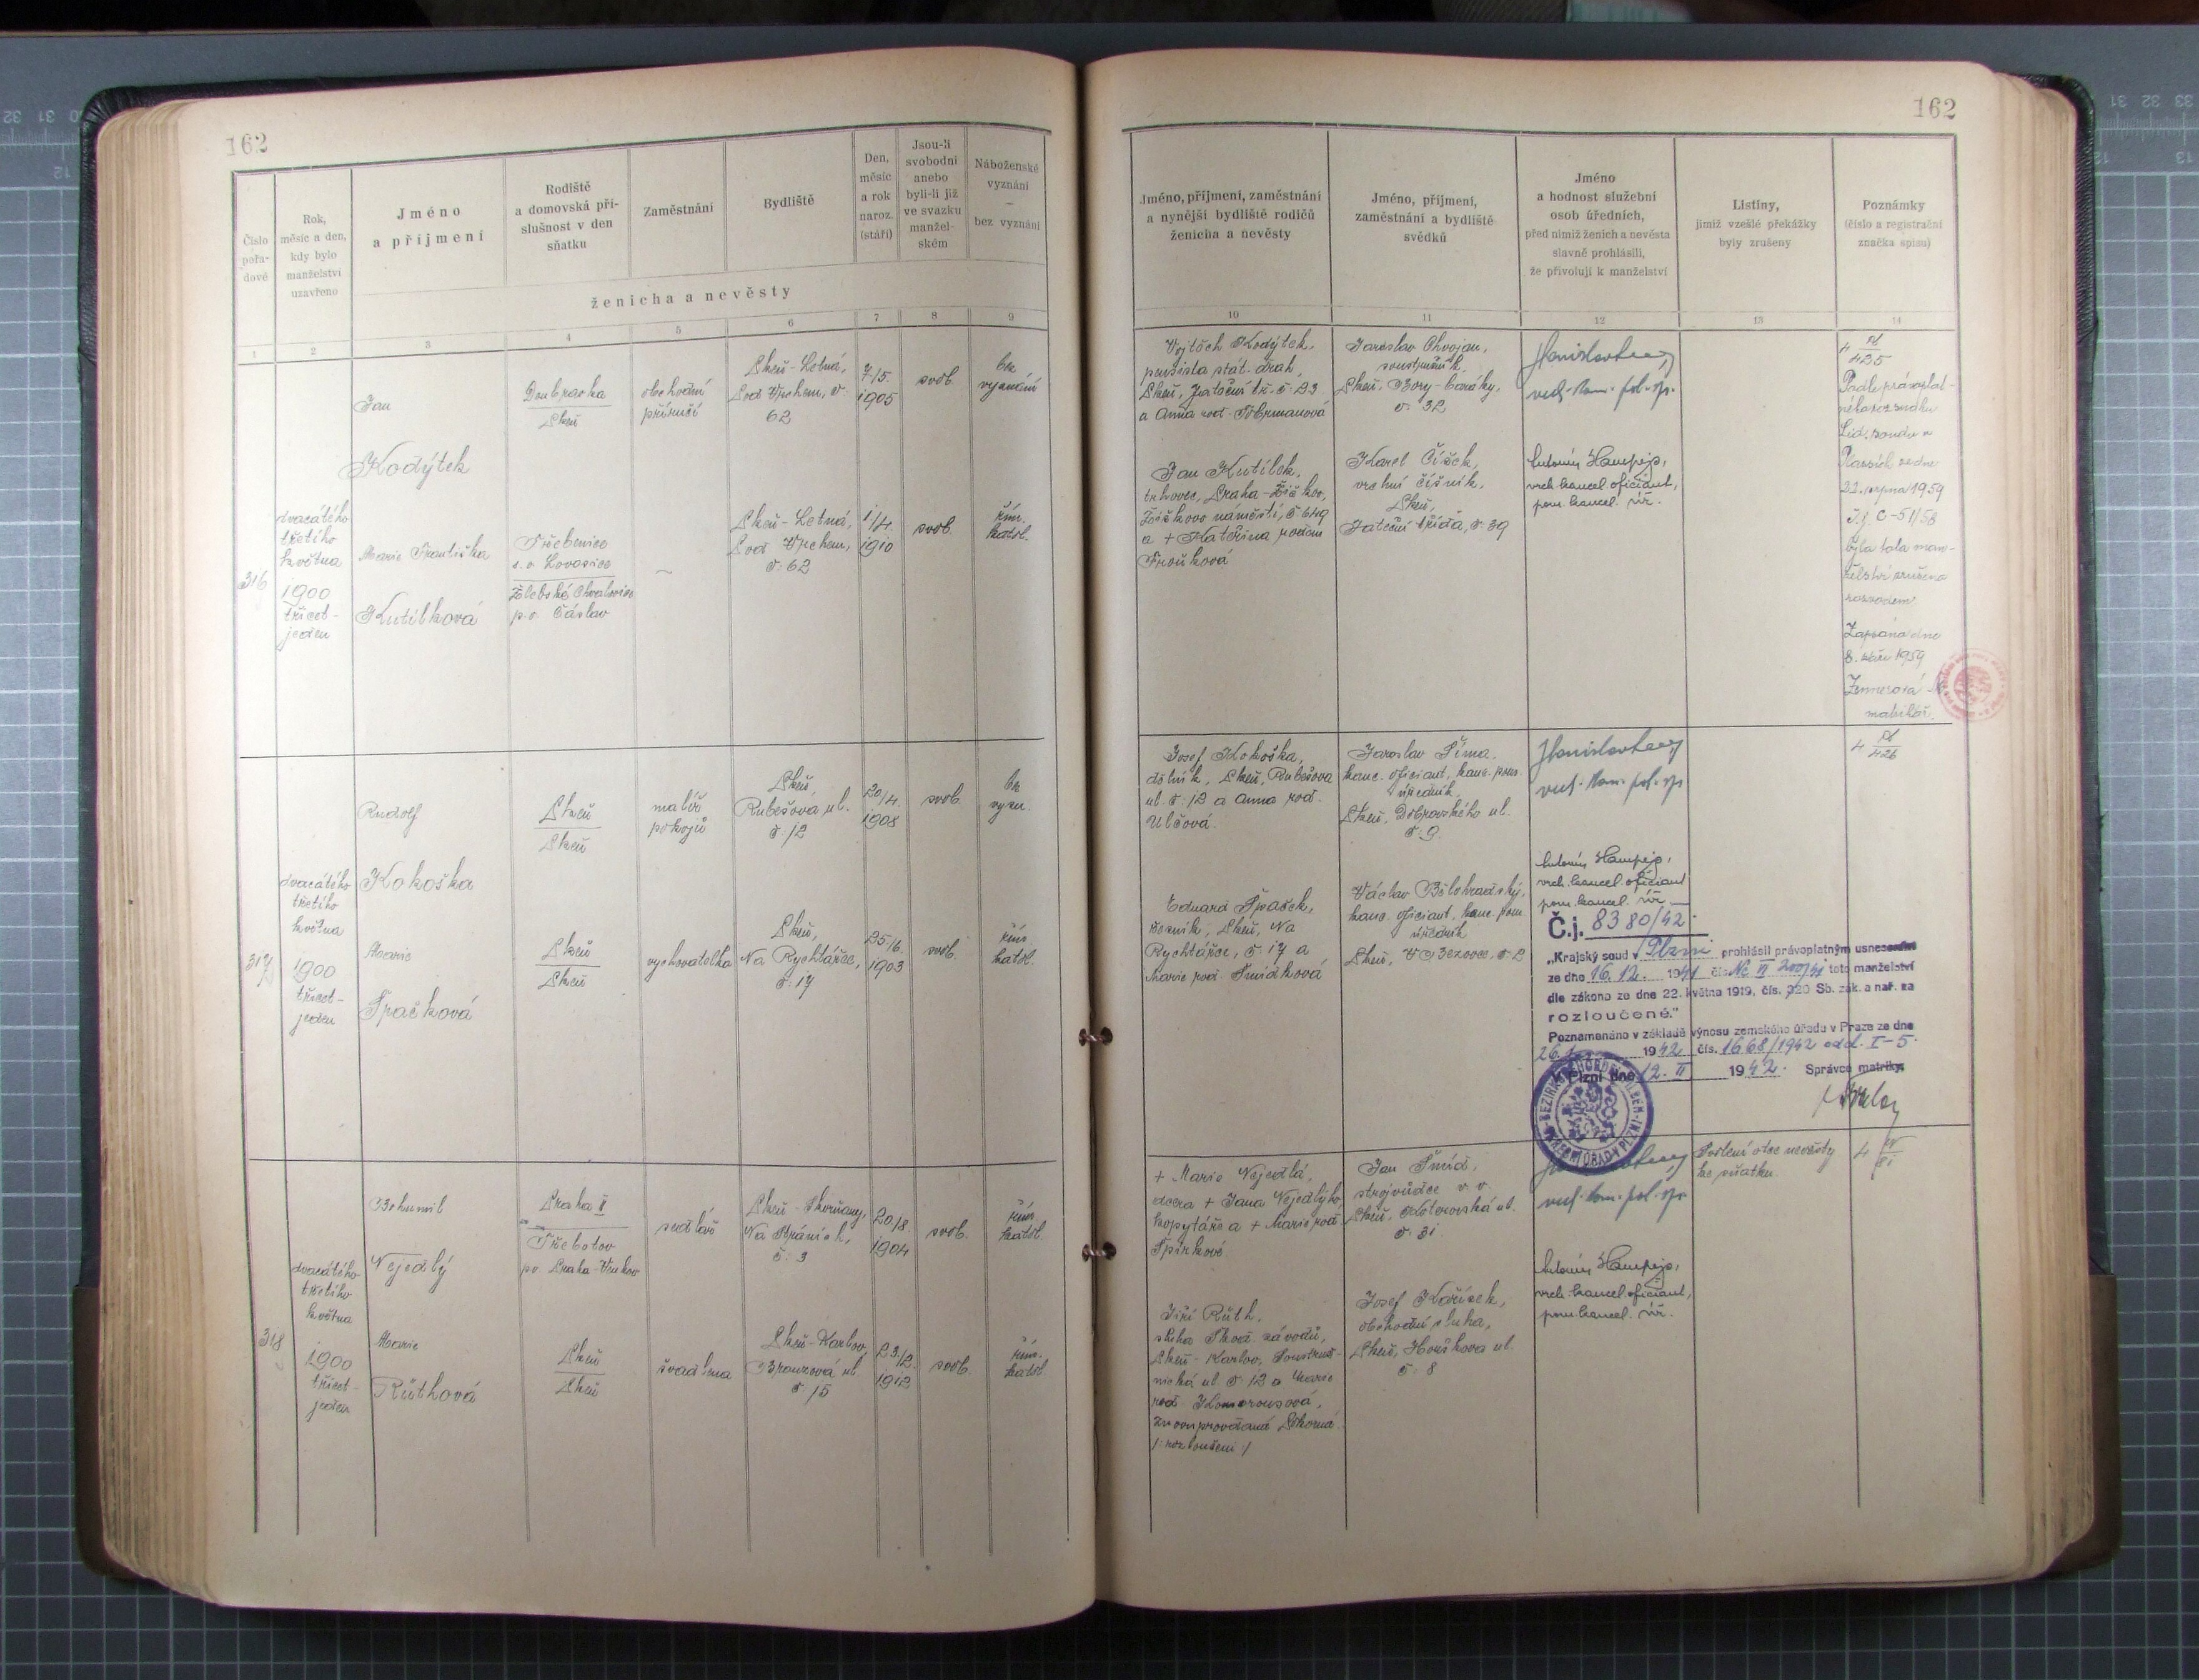 162
Číslo
pořa-
dové
Rok,
měsíc a den,
kdy bylo
manželství
uzavřeno
Jméno
a příjmení
Rodiště
a domovská pří-
slušnost v den
sňatku
Zaměstnání
Bydliště
Den,
měsíc
a rok
naroz.
(stáří)
Jsou-li
svobodni
anebo
byli-li již
ve svazku
manžel-
ském
Náboženské
vyznání
–
bez vyznání
ženicha a nevěsty
1 2 3 4 5 6 7 8 9
316
dvacátého
třetího
května
1900
třicet-
jeden
Jan
Kodýtek
Doubravka
Plzeň
obchodní
příručí
Plzeň-Letná,
Pod Vrchem, č.
62
7/5.
1905
svob.
bez
vyznání
Marie Františka
Kutílková
Třebenice
s. o. Lovosice
Žlebské Chvalovice
p. o. Čáslav
Plzeň-Letná,
Pod Vrchem,
č. 62
1/4.
1910
svob.
řím.
katol.
317
dvacátého
třetího
května
1900
třicet-
jeden
Rudolf
Kokoška
Plzeň
Plzeň
malíř
pokojů
Plzeň,
Rubešova ul.
č. 12
20/4.
1908
svob.
bez
vyzn.
Marie
Špačková
Plzeň
Plzeň
vychovatelka
Plzeň,
Na Rychtářce,
č. 17
25/6.
1903
svob.
řím.
katol.
318
dvacátého
třetího
května
1900
třicet-
jeden
Bohumil
Nejedlý
Praha II
Třebotov
po. Praha-Venkov
sedlář
Plzeň-Skvrňany,
č. 3
20/8.
1904
svob.
řím.
katol.
Marie
Rüthová
Plzeň
Plzeň
švadlena
Plzeň-Karlov,
Bronzová ul.
č. 15
23/12.
1912
svob.
řím.
katol.
162
Jméno, příjmení, zaměstnání
a nynější bydliště rodičů
ženicha a nevěsty
Jméno, příjmení,
zaměstnání a bydliště
svědků
Jméno
a hodnost služební
osob úředních,
před nimiž ženich a nevěsta
slavně prohlásili,
že přivolují k manželství
Listiny,
jimiž vzešlé překážky
byly zrušeny
Poznámky
(číslo a registrační
značka spisu)
10 11 12 13 14
Vojtěch Kodýtek,
pensista stát. drah,
Plzeň, Jateční tř. č. 23
a Anna roz. Tobrmanová
Jan Kutílek,
trhovec, Praha-Žižkov,
Žižkovo náměstí, č. 649
a + Kateřina rodem
Jaroslav Chvojan,
soustružník,
Plzeň, Bory-baráky,
č. 32
Karel Čížek,
vrchní číšník,
Plzeň,
Jateční třída, č. 39
Antonín Hampejs,
vrch. kancel. oficiant,
pom. kancel. úř.
4
425
Podle právoplat-
ného rozsudku
Lid. soudu v
ze dne
22. srpna 1959
C-51/58
bylo toto man-
želství zrušeno
rozvodem
Zapsáno dne
8. září 1959
matrikář.
Josef Kokoška,
dělník, Plzeň, Rubešova
ul. č. 12 a Anna roz.
Ulčová.
Eduard Špaček,
řezník, Plzeň, Na
Rychtářce, č. 17 a
Marie roz. Šmídková
Jaroslav Šíma,
kanc. oficiant, kanc. pom.
úředník,
Plzeň, Dobrovského ul.
č. 9.
Václav Bělohradský,
kanc. oficiant, kanc. pom.
úředník
Plzeň, V Bezovce, č. 2
Antonín Hampejs,
vrch. kancel. oficiant
pom. kancel. úř.
4
426
Č.j. 8380/42
„Krajský soud v Plzni prohlásil právoplatným usnesením
ze dne 16. 12. 1941 čís. toto manželství
dle zákona ze dne 22. května 1919, čís. 320 Sb. zák. a nař. za
rozloučené."
Poznamenáno v základě výnosu zemského úřadu v Praze ze dne
1942 čís. 1668/1942 odd. I-5.
V Plzni dne 12. II 1942. Správce matriky:
+ Marie Nejedlá,
dcera + Jana Nejedlýho,
kopytáře a + Marie roz.
Špírkové.
Jiří Rüth,
sluha Škod. závodů,
Plzeň-Karlov, Soustruž-
nická ul. č. 12 a Marie
roz. Komorousová,
znovuprovdaná
/: rozloučeni :/
Jan Šmíd,
strojvůdce v. v.
Plzeň, Koterovská ul.
č. 31
Josef Kořínek,
obchodní sluha,
Plzeň, Houškova ul.
č. 8
Antonín Hampejs,
vrch. kancel. oficiant,
pom. kancel. úř.
Svolení otce nevěsty
ke sňatku.
4